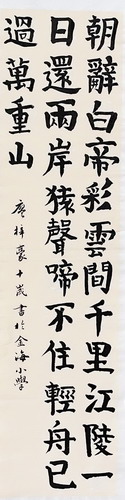 朝辭白帝彩雲間千里江陵一
日還兩岸猿聲啼不住輕舟已
過萬重山
唐梓豪十歲書於金海小學